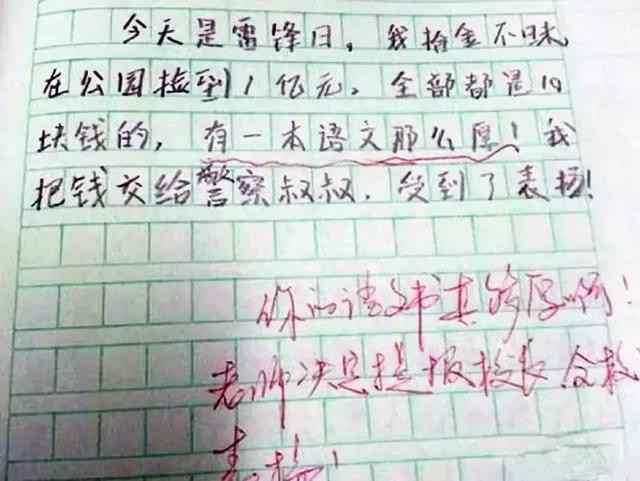 今天是雷锋日，我拾金不昧，
在公园捡到1亿元。全部都是10
块钱的，有一本语文那么厚！我
把钱交给警察叔叔，受到了表扬！
你的语文书真够厚啊！
老师决定提报校长，全校
表扬！